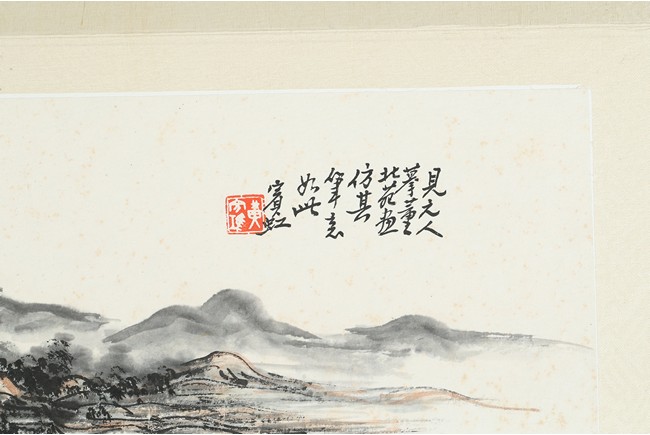 見元人
摹董
北苑畫
仿其
筆意
如此
賓虹
黃